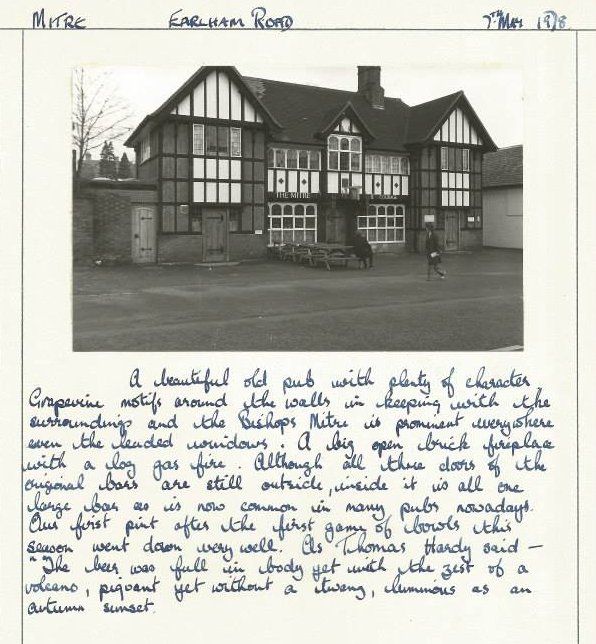 MITRE EARLHAM ROAD 7TH MAY 1978
THE MITRE COURAGE
A beautiful old pub with plenty of character.
Grapevine motifs around the walls in keeping with the
surroundings and the Bishops Mitre is prominent everywhere
even the leaded windows. A big open brick fireplace
with a log gas fire. Although all three doors of the
original bars are still outside, inside it is all one
large bar as is now common in many pubs nowadays.
Our first pint after the first game of bowls this
season went down very well. As Thomas Hardy said —
"The beer was full in body yet with the zest of a
volcano, piquant yet without a twang, luminous as an
autumn sunset.